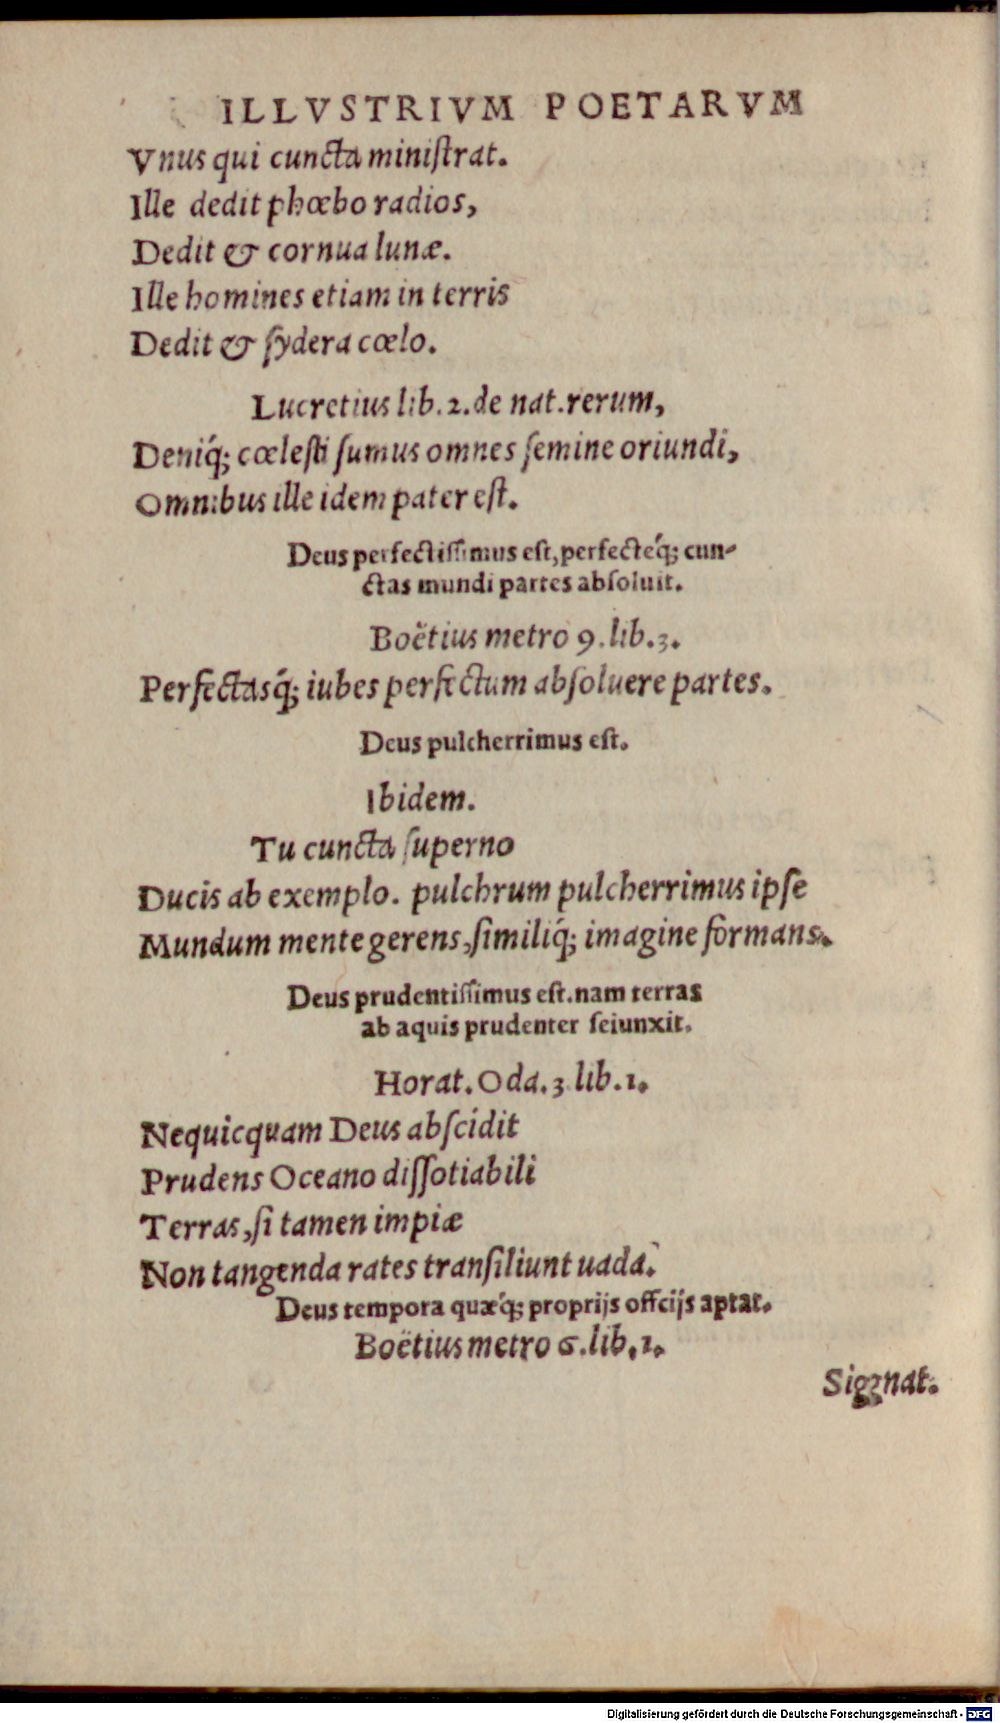 ILLVSTRIVM POETARVM
Vnus qui cuncta miniſtrat.
Ille dedit phœbo radios,
Dedit & cornua lunæ.
Ille homines etiam in terris
Dedit & ſydera cœlo.
Lucretius lib. 2. de nat. rerum,
Deniq́; cœleſti ſumus omnes ſemine oriundi,
Omnibus ille idem pater eſt.
Deus perfectiſſimus eſt, perfecteq́; cun-
ctas mundi partes abſoluit.
Boëtius metro 9. lib. 3.
Perfectasq́; iubes perfectum abſoluere partes.
Deus pulcherrimus eſt.
Ibidem.
Tu cuncta ſuperno
Ducis ab exemplo. pulchrum pulcherrimus ipſe
Mundum mente gerens, ſimiliq́; imagine formans.
Deus prudentiſſimus eſt. nam terras
ab aquis prudenter ſeiunxit.
Horat. Oda. 3 lib. 1.
Nequicquam Deus abſcidit
Prudens Oceano diſſotiabili
Terras, ſi tamen impiæ
Non tangenda rates tranſiliunt uada.
Deus tempora quæq́; proprijs offcijs aptat.
Boëtius metro 6. lib. 1.
Signat.
Digitalisierung gefördert durch die Deutsche Forschungsgemeinschaft - DFG